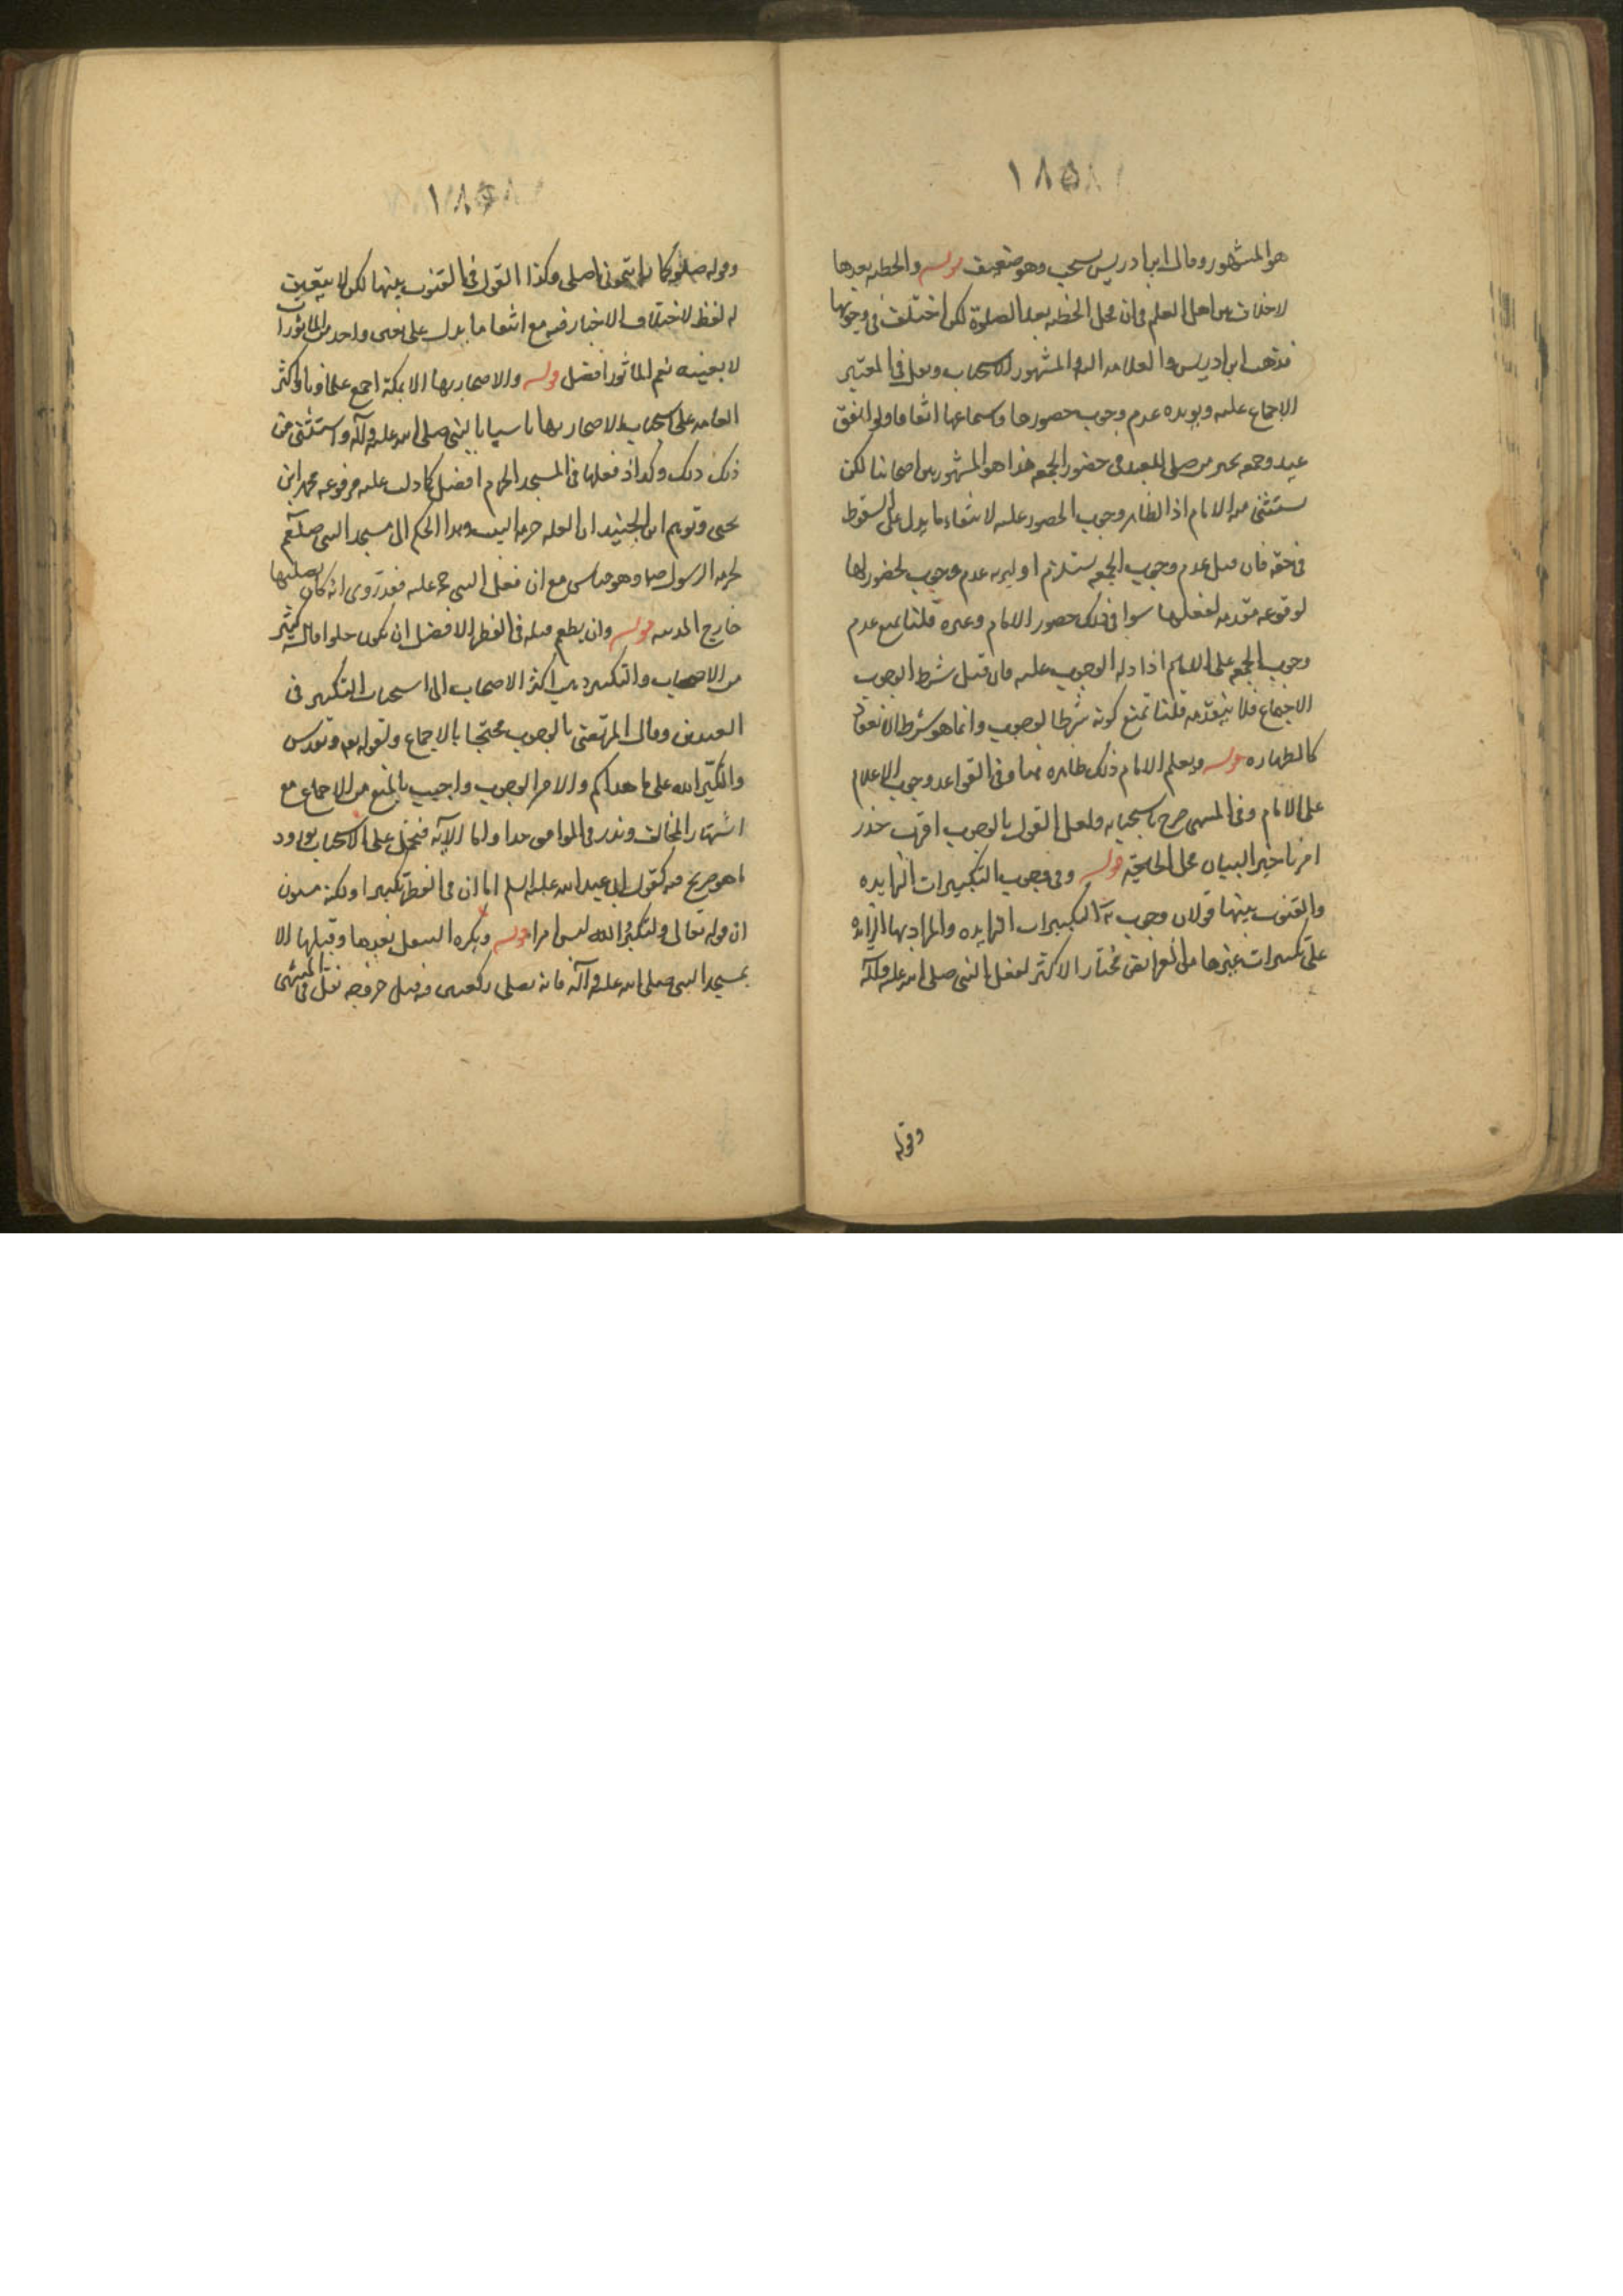 ١٨٥
هو المشهور وقال ابن ادريس يستحب وهو ضعيف قوله والخطبه بعدها
لا خلاف بين اهل العلم فى ان محل الخطبه بعد الصلوة لكن اختلف فى وجوبها
فذهب ابن ادريس والعلامه اليه والمشهور الاستحباب ونقل فى المعتبر
الاجماع عليه ويويده عدم وجوب حضورها وسماعها اتفاقا ولو اتفق
عيد وجمعه تخير من صلى العيد فى حضور الجمعه هذا هو المشهور بين اصحابنا لكن
يستثنى منه الامام اذ الظاهر وجوب الحضور عليه لانتفاء ما يدل على السقوط
فى حقه فان قيل عدم وجوب الجمعه يستلزم اولويه عدم وجوب الحضور لها
لوقوعه مقدمه لفعلها سوا فى ذلك حضور الامام وغيره قلنا نمنع عدم
وجوب الجمعه على الامام اذ ادلة الوجوب عليه فان قيل شرط الوجوب
الاجتماع فلا يتقدمه قلنا نمنع كونه شرطا لوجوب وانما هو شرط الانعقاد
كالطهاره قوله ويعلم الامام ذلك ظاهره هنا وفى القواعد وجوب الاعلام
على الامام وفى المنتهى صرح باستحبابه ولعل القول بالوجوب اقرب حذر
امن تاخير البيان محل الحاجة قوله وفى وجوب التكبيرات الزايده
والقنوت بينها قولان وجوب التكبيرات الزايده والمراد بها الزايده
على تكبيرات غيرها من الفرائض مختار الاكثر لفعل النبى صلى الله عليه وآله
وقوله
١٨٥
وقوله صلوا كما رايتمونى اصلى وكذا القول فى القنوت بينها لكن لا يتعين
له لفظ لاختلاف الاخبار فيه مع انتفا ما يدل على تعين واحد من الماثورات
لا بعينه نعم الماثور افضل قوله والاصحار بها الا بمكة اجمع علماؤنا واكثر
العامه على استحباب الاصحار بها تاسيا بالنبى صلى الله عليه وآله واستثنى من
ذلك وكد اذ فعلها فى المسجد الحرام افضل كما دلت عليه مرفوعه محمد ابن
يحيى وتوهم ابن الجنيد ان العله حرمه البيت فعدا الحكم الى مسجد النبى صلعم
لحرمه الرسول وهو قياس مع ان فعل النبى حجة عليه فقد روى انه كان يصليها
خارج المدينه قوله وان يطعم قبله فى الفطر الافضل ان يكون حلوا قاله كثير
من الاصحاب والتكبير ذهب اكثر الاصحاب الى استحباب التكبير فى
العيدين وقال المرتضى بالوجوب محتجا بالاجماع ولقوله تعالى وتقدس
ولتكبر الله على ما هداكم والامر الوجوب واجيب بالمنع من الاجماع مع
اشتهار المخالف وندر فى الموافق جدا واما الآيه فتحمل على الاستحباب لورود
ما هو صريح فيه كقول ابى عبد الله عليه السلم اما ان فى الفطر تكبيرا ولكنه مسنون
ان قوله تعالى ولتكبروا الله ليس امرا قوله ويكره التنفل بعدها وقبلها الا
بمسجد النبى صلى الله عليه وآله فانه يصلى ركعتين فيه قبل خروجه نقل فى المنتهى